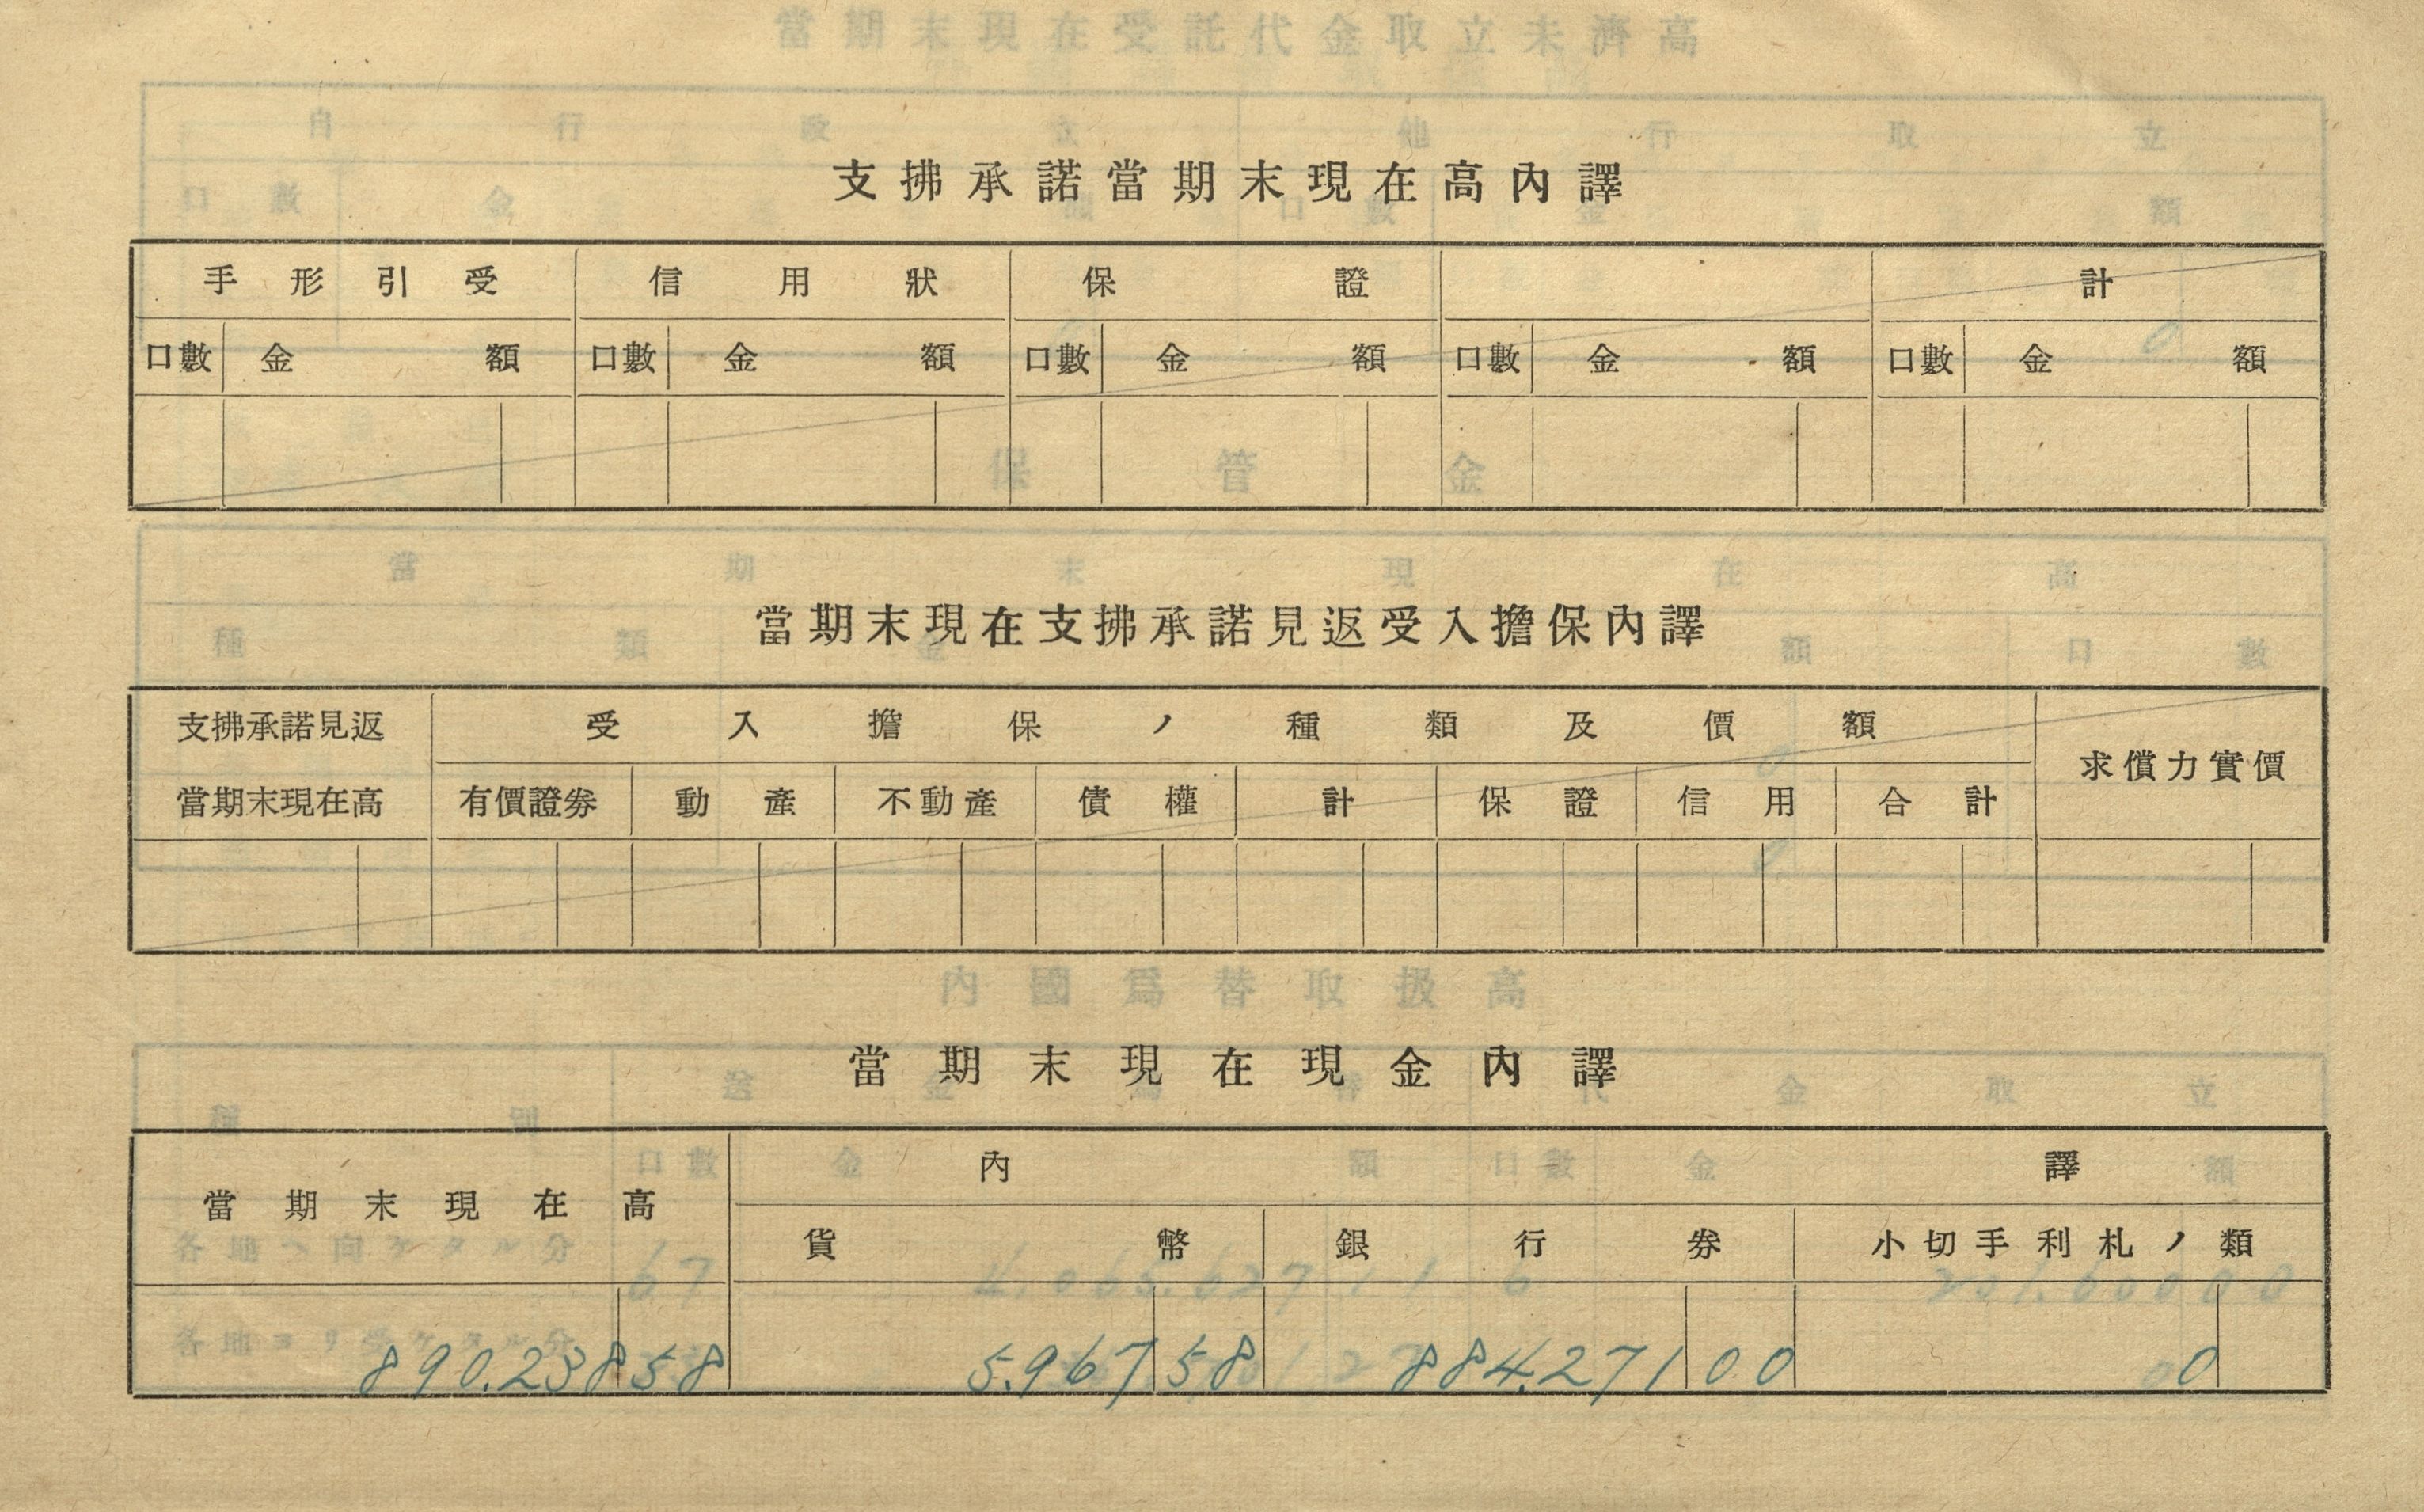 支拂承諾當期末現在高內譯
手形引受 信用狀 保證 計
口數 金額 口數 金額 口數 金額 口數 金額 口數 金額
當期末現在支拂承諾見返受入擔保內譯
支拂承諾見返 受入擔保ノ種類及價額 求償力實價
當期末現在高 有價證券 動產 不動產 債權 計 保證 信用 合計
當期末現在現金內譯
當期末現在高 內譯
貨幣 銀行券 小切手利札ノ類
890.238 58 5.967 58 884.271 00 0